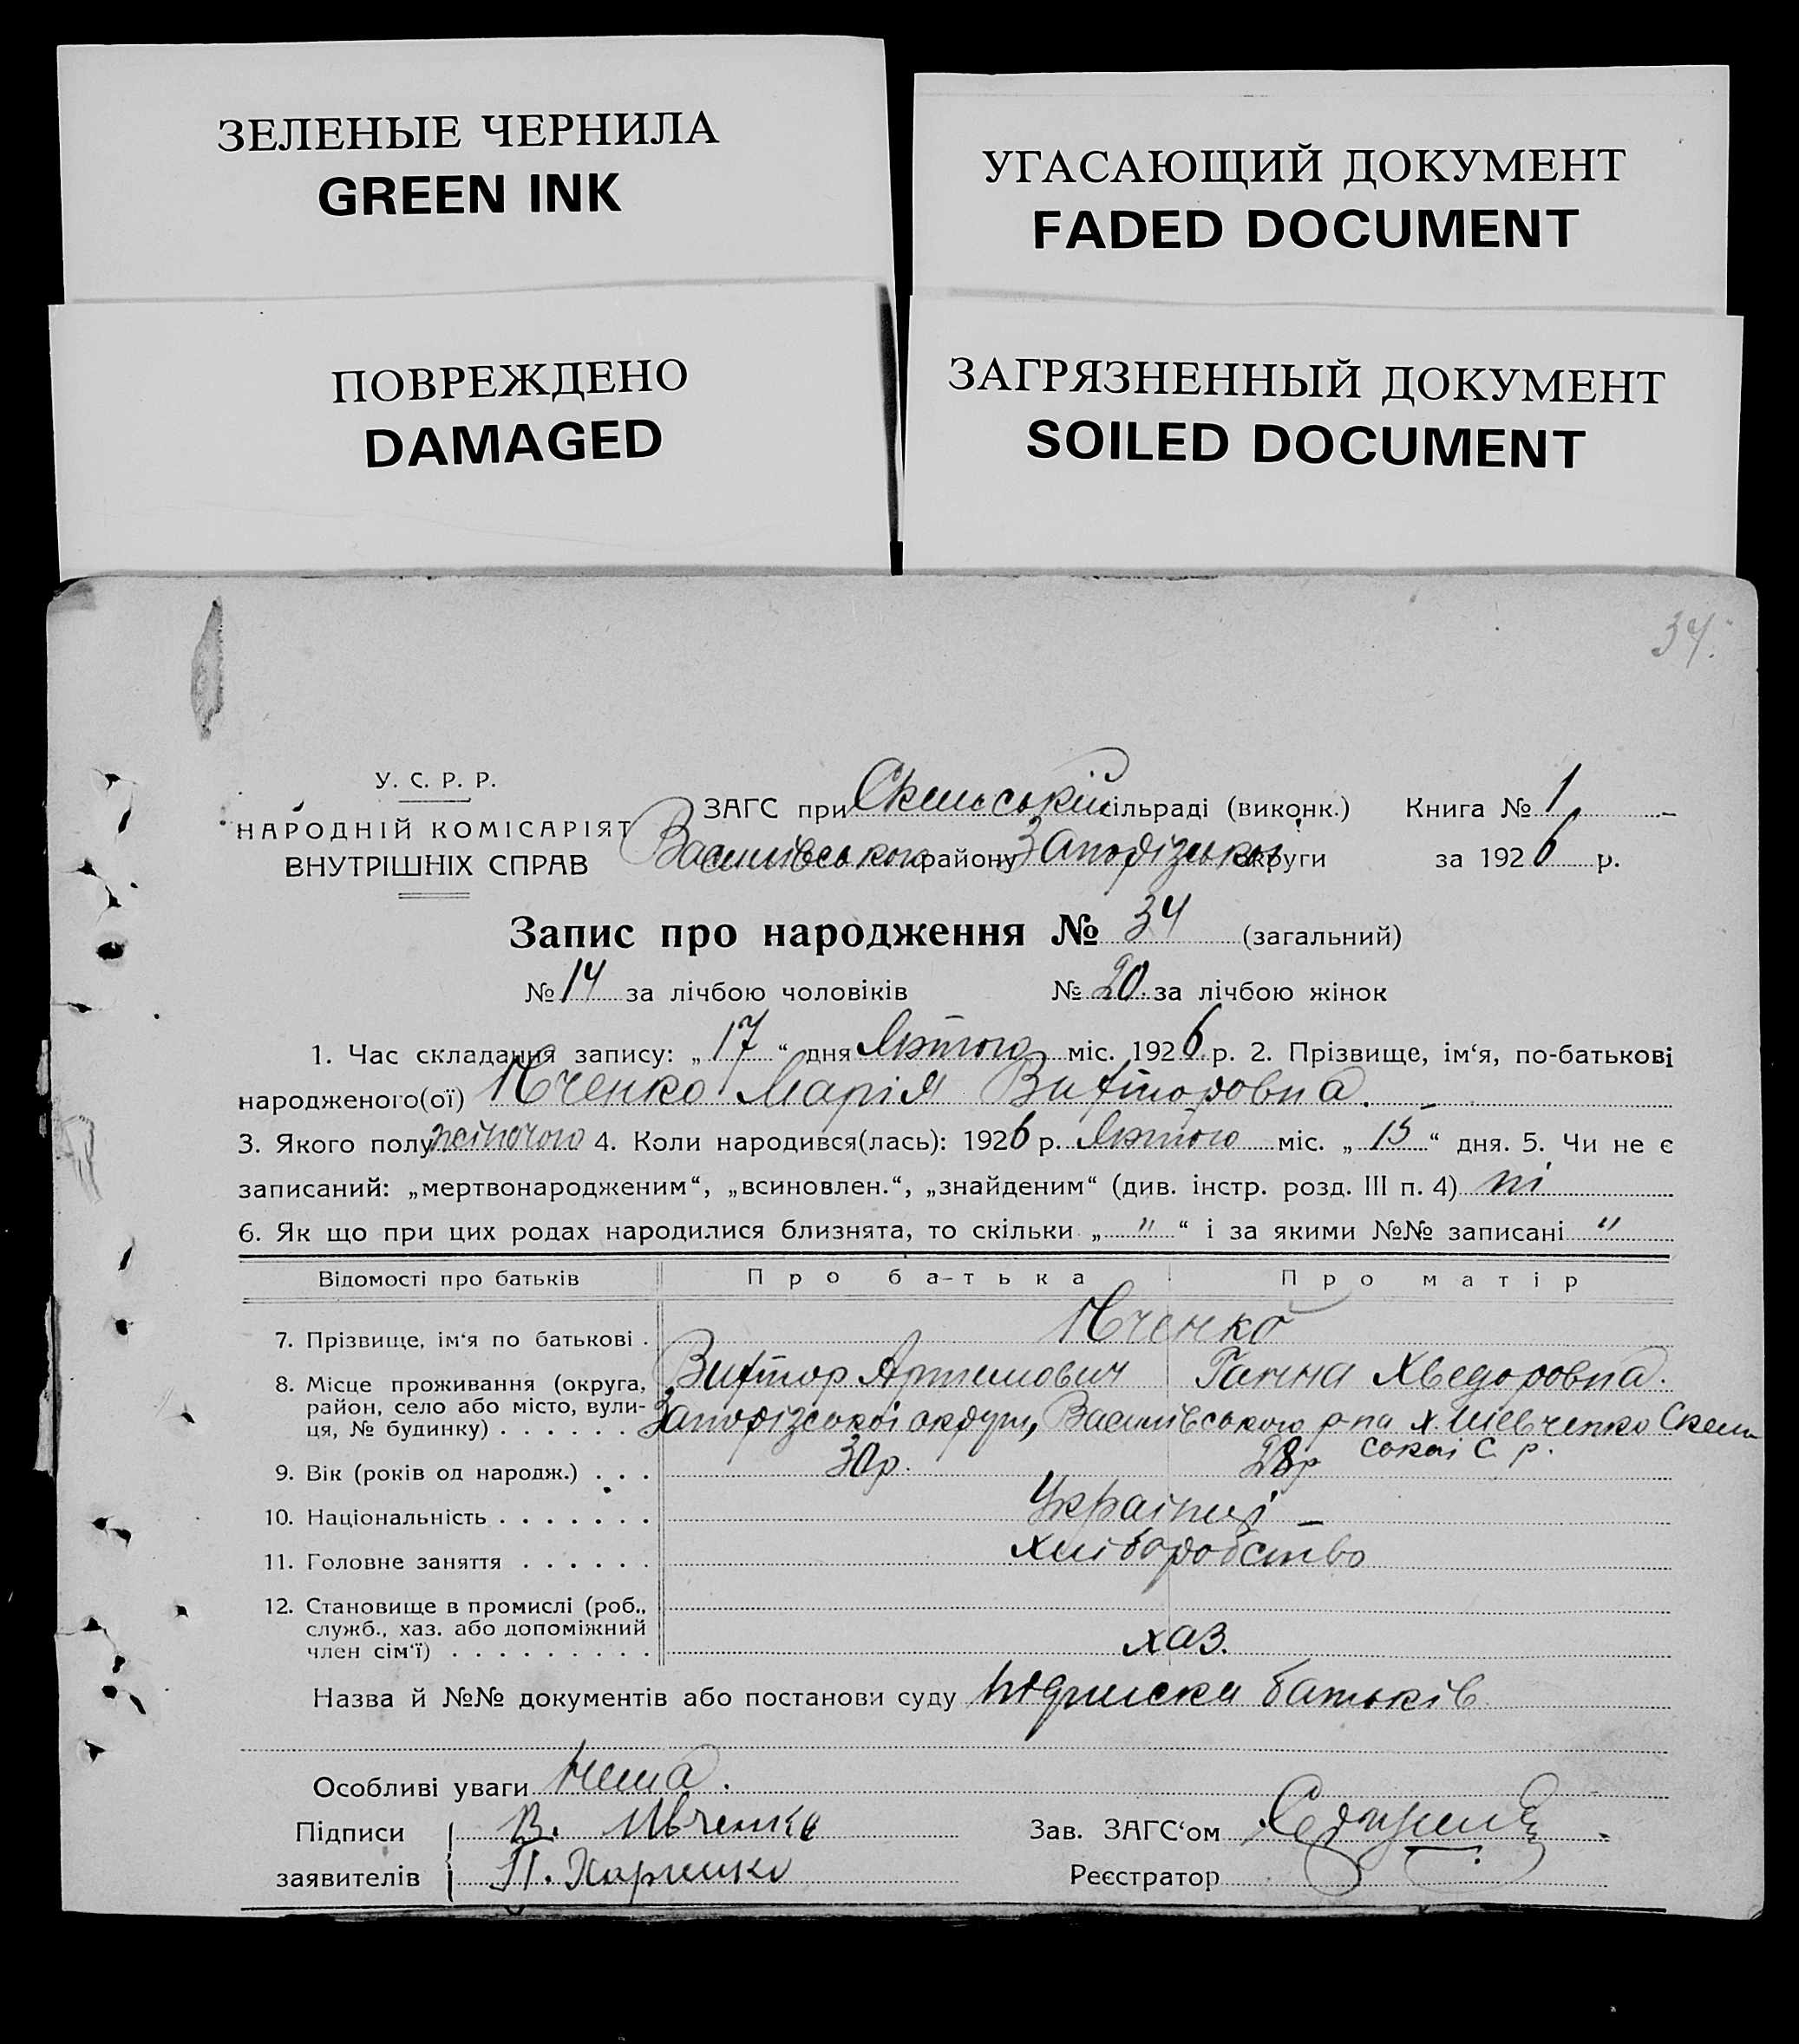 ЗЕЛЕНЫЕ ЧЕРНИЛА
GREEN INK
УГАСАЮЩИЙ ДОКУМЕНТ
FADED DOCUMENT
ПОВРЕЖДЕНО
DAMAGED
ЗАГРЯЗНЕННЫЙ ДОКУМЕНТ
SOILED DOCUMENT
34.
У. С. Р. Р.
НАРОДНІЙ КОМІСАРІЯТ
ВНУТРІШНІХ СПРАВ
ЗАГС при Скельській сільраді (виконк.) Книга № 1
Василівського району Запорізької округи за 1926 р.
Запис про народження № 34 (загальний)
№ 14 за лічбою чоловіків № 20. за лічбою жінок
1. Час складання запису: „17“ дня Лютого міс. 1926 р. 2. Прізвище, ім‘я, по-батькові
народженого(ої) Ївченко Марія Вифторовна.
3. Якого полу жіночого 4. Коли народився(лась): 1926 р. Лютого міс. „15“ дня. 5. Чи не є
записаний: „мертвонародженим“, „всиновлен.“, „знайденим“ (див. інстр. розд. III п. 4) ні
6. Як що при цих родах народилися близнята, то скільки „ " “ і за якими №№ записані "
Відомості про батьків Про батька Про матір
7. Прізвище, ім‘я по батькові . Ївченко
Вифтор Артемович Ганна Хведоровна.
8. Місце проживання (округа, район, село або місто, вулиця, № будинку) . . . . . . Запорізької округи, Василівського р-на х. Шевченко Скельської С. р.
9. Вік (років од народж.) . . . 30 р. 28 р
10. Національність . . . . . . . Українці
11. Головне заняття . . . . . . хліборобство
12. Становище в промислі (роб., служб., хаз. або допоміжний член сім‘ї) . . . . . . . . . хаз.
Назва й №№ документів або постанови суду підписка батьків
Особливі уваги Нема.
Підписи В. Ивченко Зав. ЗАГС‘ом
заявителів П. Реєстратор